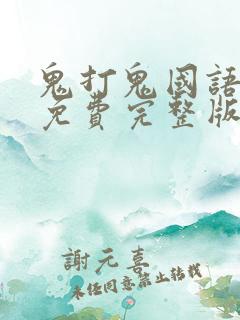 鬼打鬼國語
免費完整版
謝元喜
未经同意禁止转载